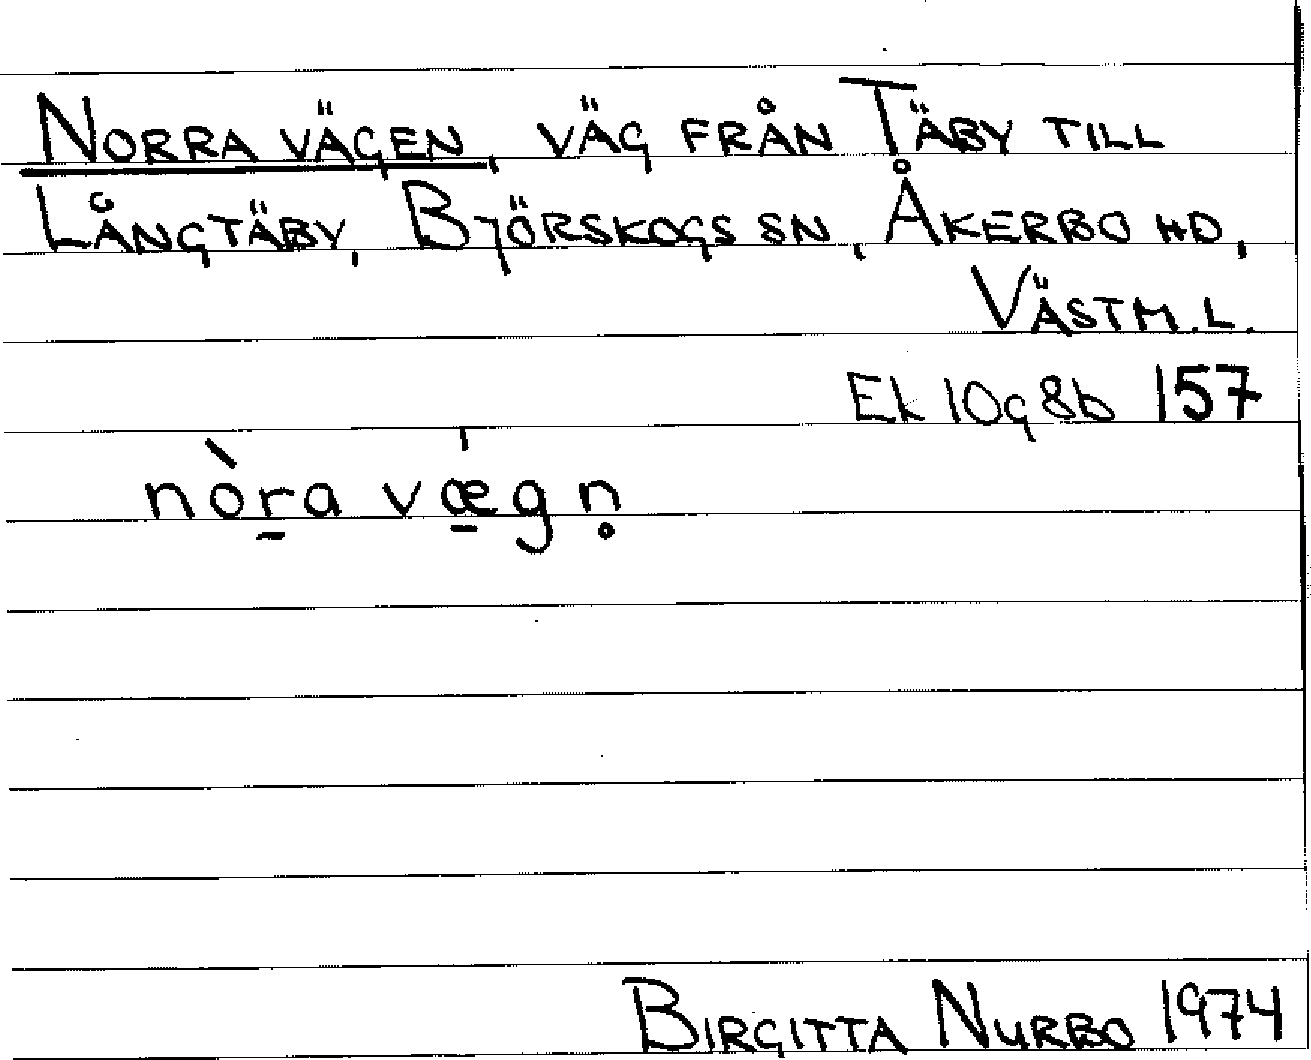 NORRA VÄGEN, VÄG FRÅN TÄBY TILL
LÅNGTÄBY, BJÖRSKOGS SN, ÅKERBO HD,
VÄSTM.L.
Ek 10g8b 157
nòr̠a vǽ̠gn̥
BIRGITTA NURBO 1974